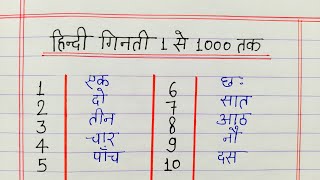 हिन्दी गिनती 1 से 1000 तक
1 एक 6 छः
2 दो 7 सात
3 तीन 8 आठ
4 चार 9 नौ
5 पाँच 10 दस